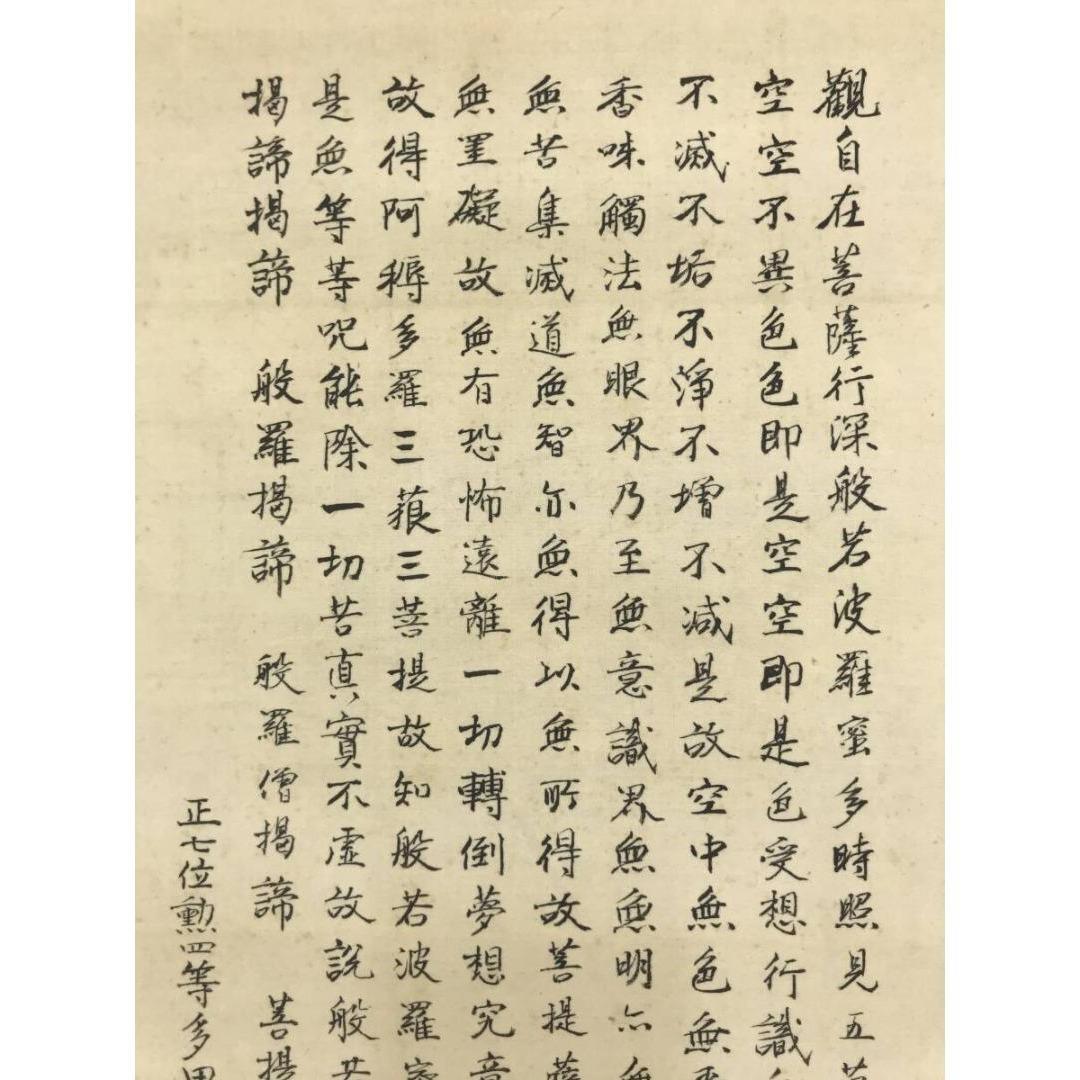 觀自在菩薩行深般若波羅蜜多時照見五
空空不異色色即是空空即是色受想行識
不滅不垢不淨不增不減是故空中無色無
香味觸法無眼界乃至無意識界無無明亦無
無苦集滅道無智亦無得以無所得故菩提薩
無罣礙故無有恐怖遠離一切轉倒夢想究竟
故得阿耨多羅三藐三菩提故知般若波羅蜜
是無等等呪能除一切苦真實不虛故說般若
揭諦揭諦 般羅揭諦 般羅僧揭諦 菩提
正七位勲四等多